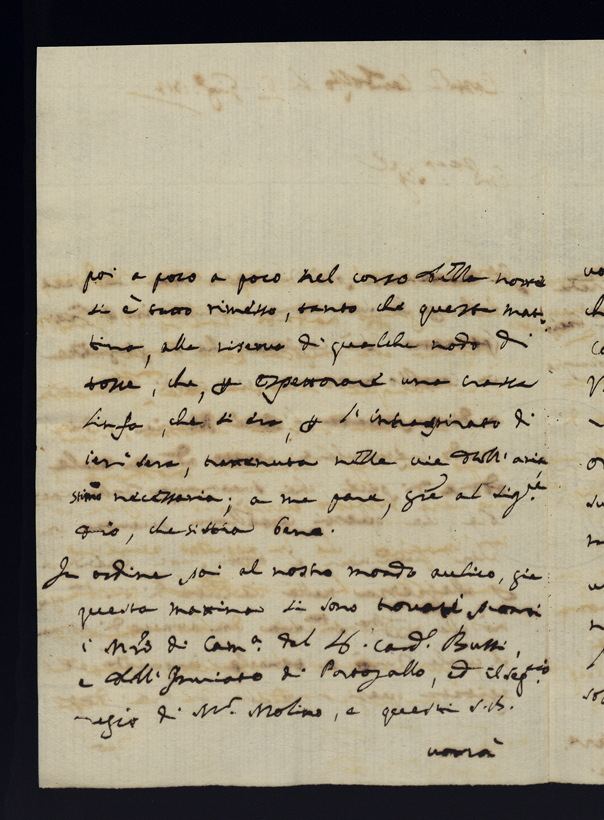 poi a poco a poco nel corso della notte
si è tutto rimesso, tanto che questa mat:
tina, alla riserva di qualche nodo di
tosse, che, per espettorare una crassa
linfa, che si era, per l'intraspirato di
ieri sera, trattenuta nelle vie dell'aria,
stimo necessaria; a me pare, grazie al Sigr.
Dio, che si stia bene.
In ordine poi al nostro mondo aulico, già
questa mattina si sono trovati pronti
i Mri di Cama. del S. Card. Bussi,
e dell'Inviato di Portogallo, ed il Segrio
regio di Mr. Molino, e questi S.S.
vorrà